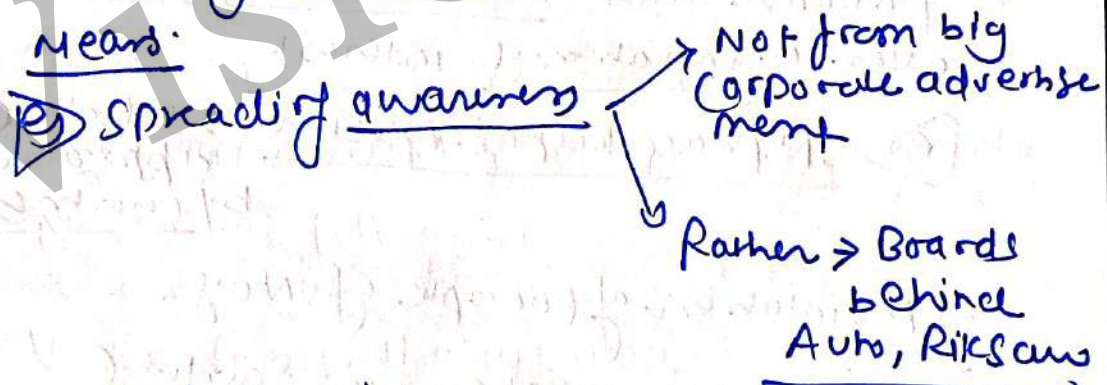 Means.
eg) Spreading awareness
Not from big
Corporate advertise
ment
Rather > Boards
behind
Auto, Riksaws